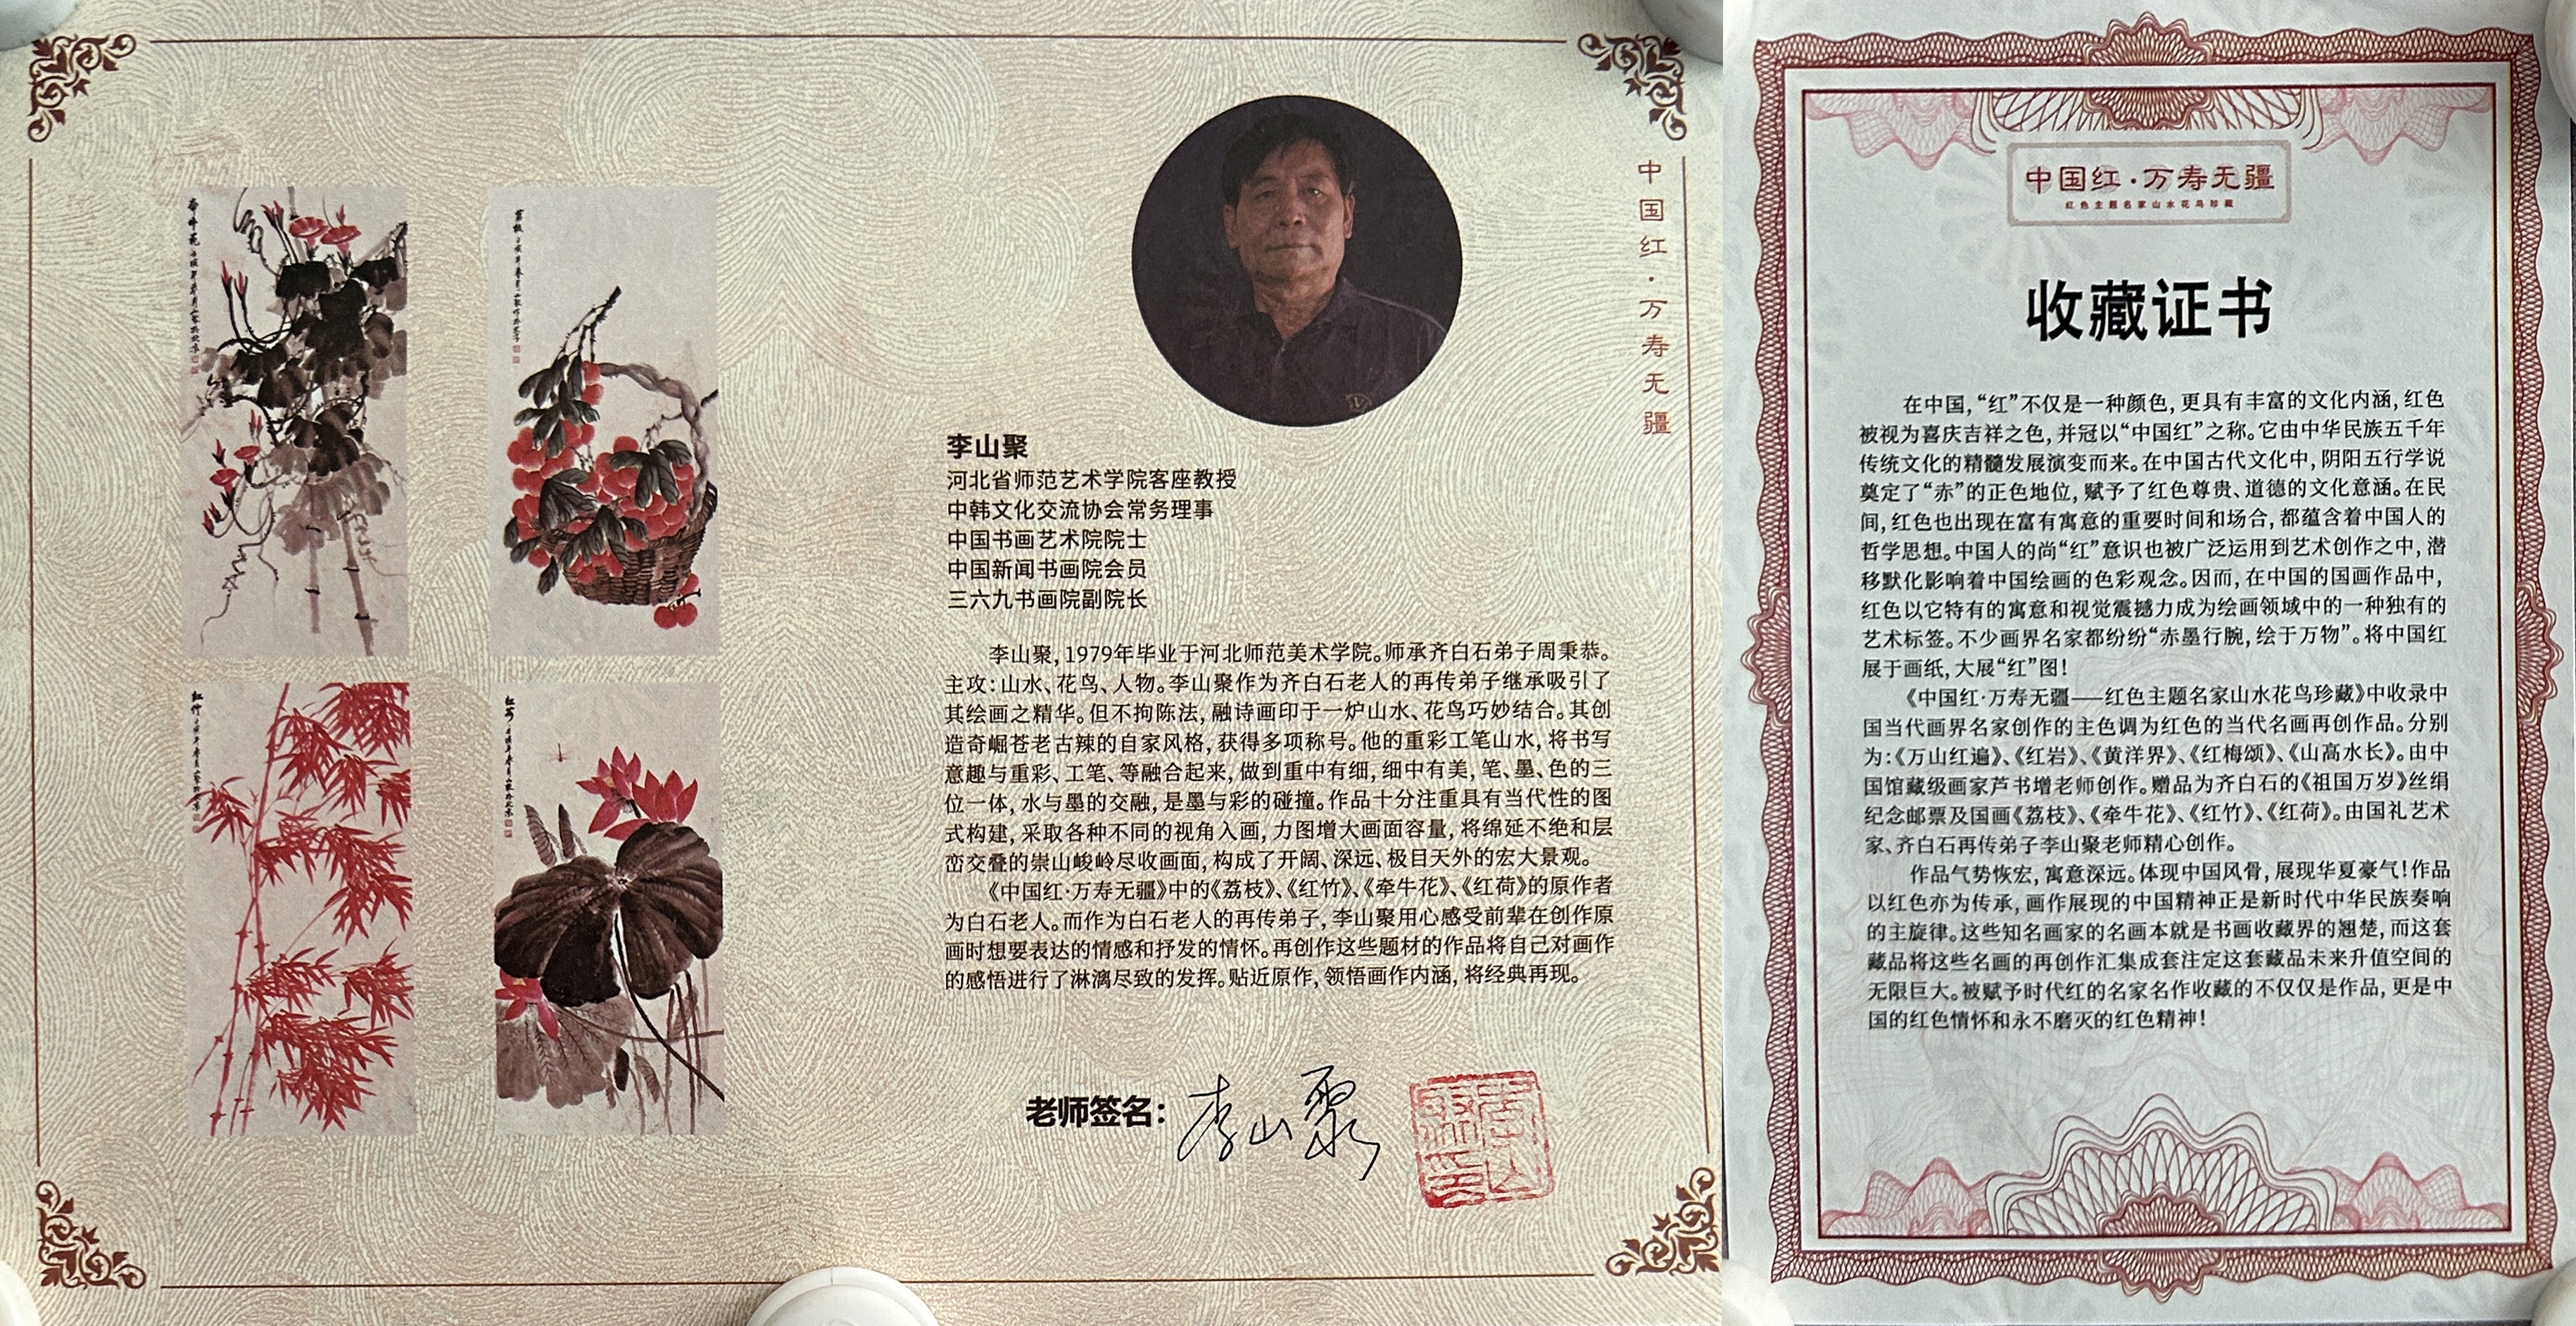 中国红·万寿无疆
李山聚
河北省师范艺术学院客座教授
中韩文化交流协会常务理事
中国书画艺术院院士
中国新闻书画院会员
三六九书画院副院长
李山聚,1979年毕业于河北师范美术学院。师承齐白石弟子周秉恭。
主攻:山水、花鸟、人物。李山聚作为齐白石老人的再传弟子继承吸引了
其绘画之精华。但不拘陈法,融诗画印于一炉山水、花鸟巧妙结合。其创
造奇崛苍老古辣的自家风格,获得多项称号。他的重彩工笔山水,将书写
意趣与重彩、工笔、等融合起来,做到重中有细,细中有美,笔、墨、色的三
位一体,水与墨的交融,是墨与彩的碰撞。作品十分注重具有当代性的图
式构建,采取各种不同的视角入画,力图增大画面容量,将绵延不绝和层
峦交叠的崇山峻岭尽收画面,构成了开阔、深远、极目天外的宏大景观。
《中国红·万寿无疆》中的《荔枝》、《红竹》、《牵牛花》、《红荷》的原作者
为白石老人。而作为白石老人的再传弟子,李山聚用心感受前辈在创作原
画时想要表达的情感和抒发的情怀。再创作这些题材的作品将自己对画作
的感悟进行了淋漓尽致的发挥。贴近原作,领悟画作内涵,将经典再现。
老师签名:李山聚
中国红·万寿无疆
红色主题名家山水花鸟珍藏
收藏证书
在中国,“红”不仅是一种颜色,更具有丰富的文化内涵,红色
被视为喜庆吉祥之色,并冠以“中国红”之称。它由中华民族五千年
传统文化的精髓发展演变而来。在中国古代文化中,阴阳五行学说
奠定了“赤”的正色地位,赋予了红色尊贵、道德的文化意涵。在民
间,红色也出现在富有寓意的重要时间和场合,都蕴含着中国人的
哲学思想。中国人的尚“红”意识也被广泛运用到艺术创作之中,潜
移默化影响着中国绘画的色彩观念。因而,在中国的国画作品中,
红色以它特有的寓意和视觉震撼力成为绘画领域中的一种独有的
艺术标签。不少画界名家都纷纷“赤墨行腕,绘于万物”。将中国红
展于画纸,大展“红”图!
《中国红·万寿无疆——红色主题名家山水花鸟珍藏》中收录中
国当代画界名家创作的主色调为红色的当代名画再创作品。分别
为:《万山红遍》、《红岩》、《黄洋界》、《红梅颂》、《山高水长》。由中
国馆藏级画家芦书增老师创作。赠品为齐白石的《祖国万岁》丝绢
纪念邮票及国画《荔枝》、《牵牛花》、《红竹》、《红荷》。由国礼艺术
家、齐白石再传弟子李山聚老师精心创作。
作品气势恢宏,寓意深远。体现中国风骨,展现华夏豪气!作品
以红色亦为传承,画作展现的中国精神正是新时代中华民族奏响
的主旋律。这些知名画家的名画本就是书画收藏界的翘楚,而这套
藏品将这些名画的再创作汇集成套注定这套藏品未来升值空间的
无限巨大。被赋予时代红的名家名作收藏的不仅仅是作品,更是中
国的红色情怀和永不磨灭的红色精神!